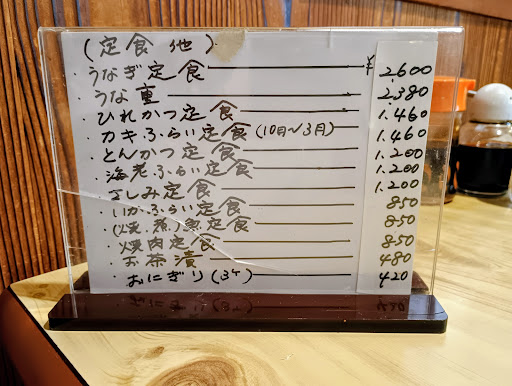 (定食 他)
・うなぎ定食 ¥2,600
・うな重 2,380
・ひれかつ定食 1,460
・カキふらい定食(10月〜3月) 1,460
・とんかつ定食 1,200
・海老ふらい定食 1,200
・さしみ定食 1,200
・いかふらい定食 850
・(焼、煮)魚定食 850
・焼肉定食 850
・お茶漬 480
・おにぎり(3ヶ) 420